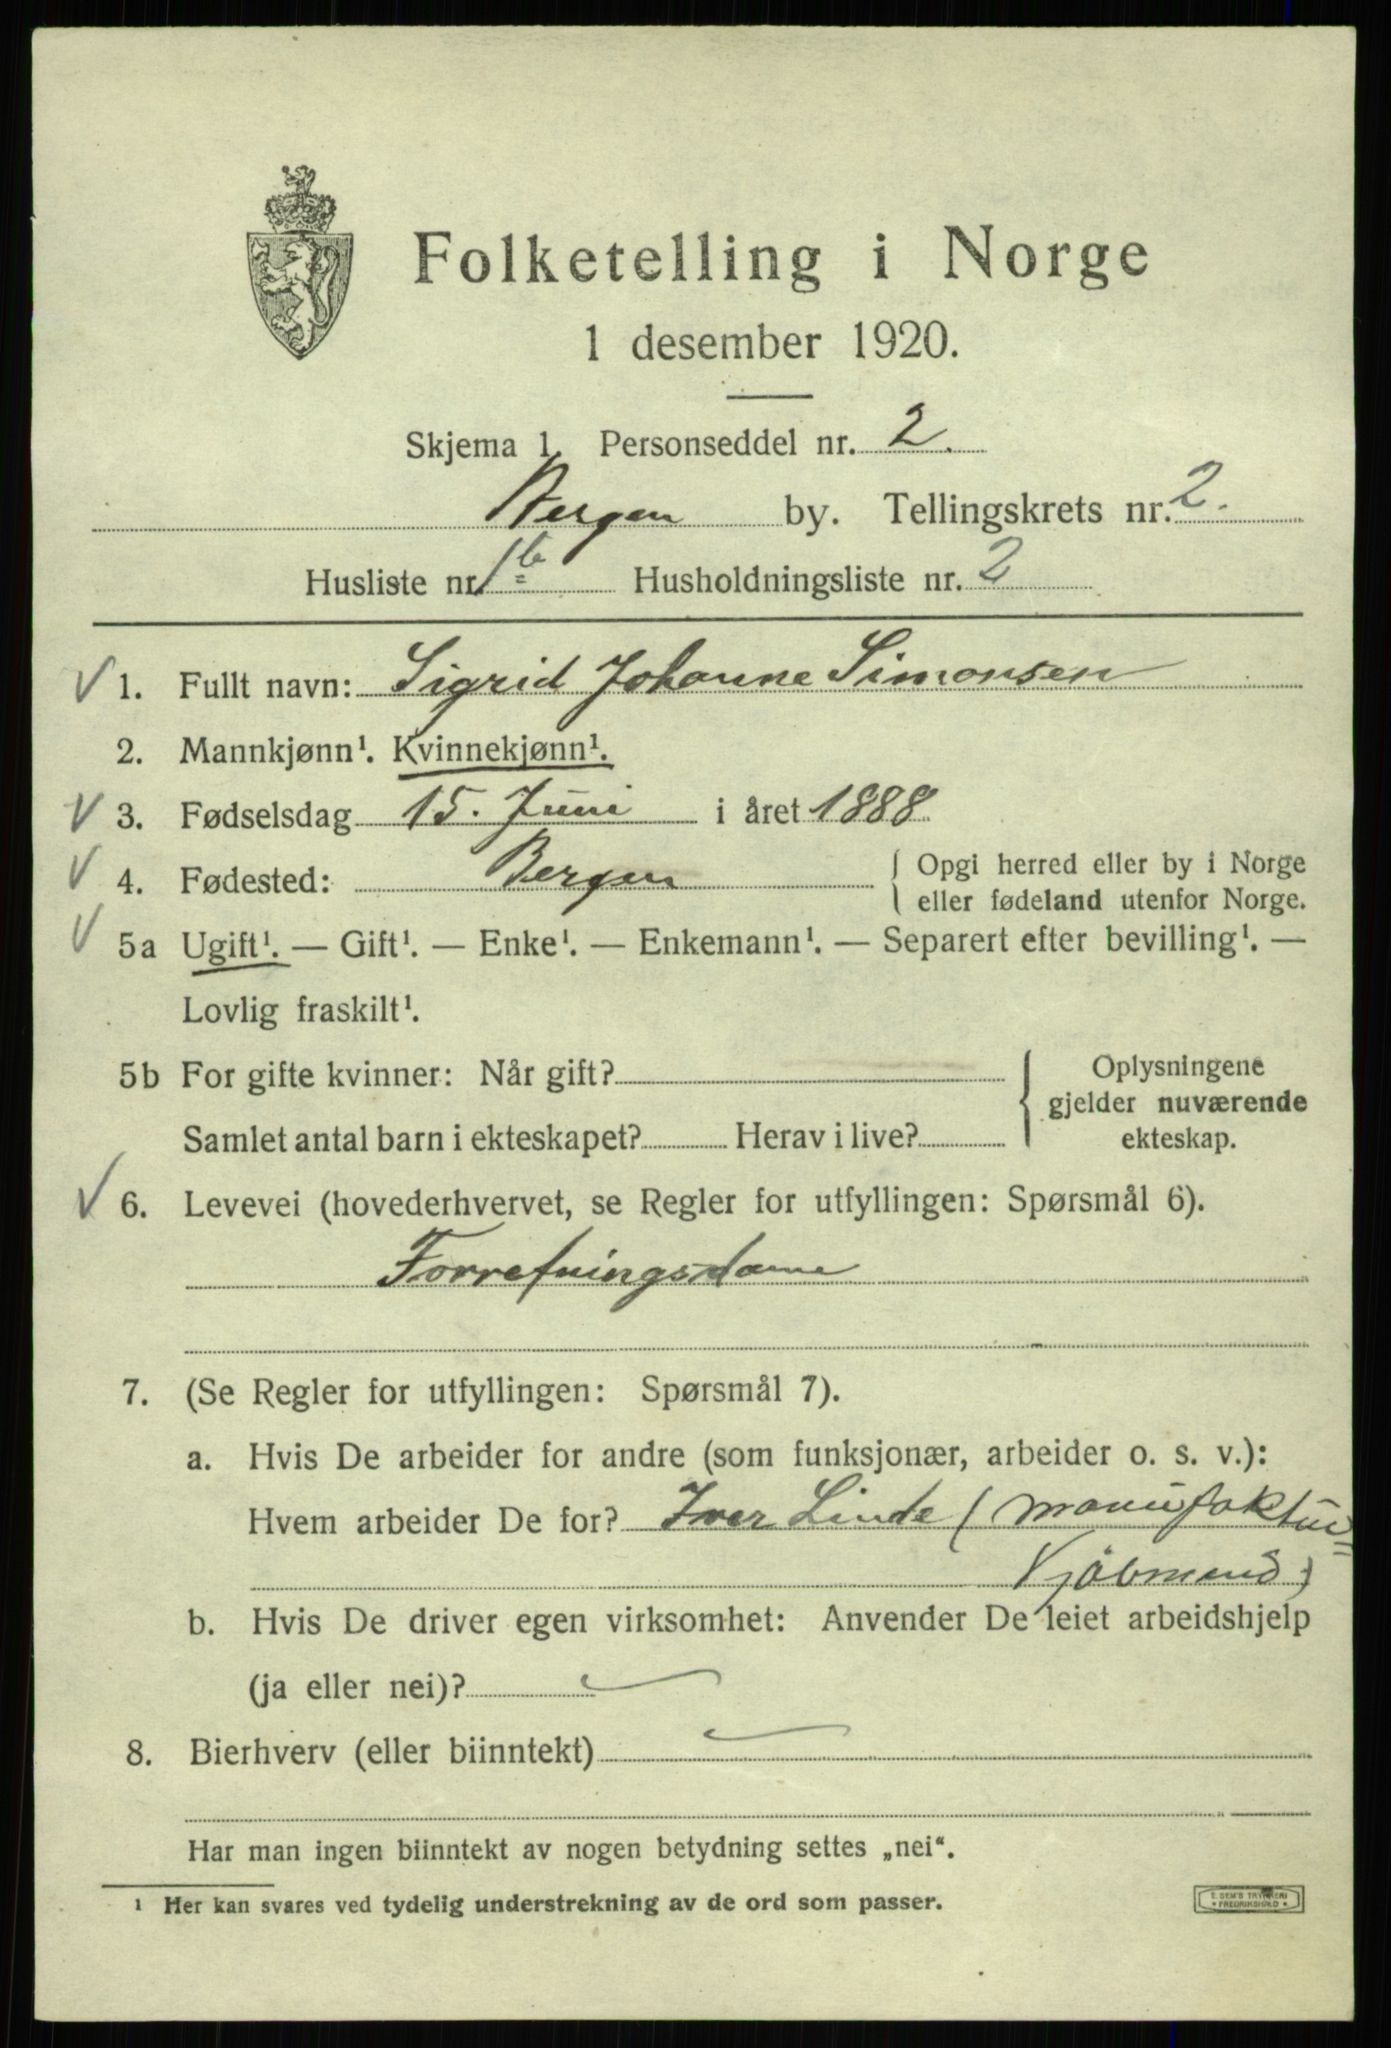 Folketelling i Norge
1 desember 1920.
Skjema 1. Personseddel nr. 2.
Bergen by. Tellingskrets nr. 2.
Husliste nr. 1b Husholdningsliste nr. 2
1. Fullt navn: Sigrid Johanne Simonsen
2. Mannkjønn¹. Kvinnekjønn¹.
3. Fødselsdag 15. Juni i året 1888
4. Fødested: Bergen { Opgi herred eller by i Norge
eller fødeland utenfor Norge.
5a Ugift¹. — Gift¹. — Enke¹. — Enkemann¹. — Separert efter bevilling¹. —
Lovlig fraskilt¹.
5b For gifte kvinner: Når gift? { Oplysningene
gjelder nuværende
Samlet antal barn i ekteskapet? Herav i live? ekteskap.
6. Levevei (hovederhvervet, se Regler for utfyllingen: Spørsmål 6).
Forretningsdame
7. (Se Regler for utfyllingen: Spørsmål 7).
a. Hvis De arbeider for andre (som funksjonær, arbeider o. s. v.):
Hvem arbeider De for? Iver Linde (manufaktur=
kjöbmand)
b. Hvis De driver egen virksomhet: Anvender De leiet arbeidshjelp
(ja eller nei)?
8. Bierhverv (eller biinntekt)
Har man ingen biinntekt av nogen betydning settes „nei“.
¹ Her kan svares ved tydelig understrekning av de ord som passer.
E. SEM'S TRYKKERI
* FREDRIKSHALD *